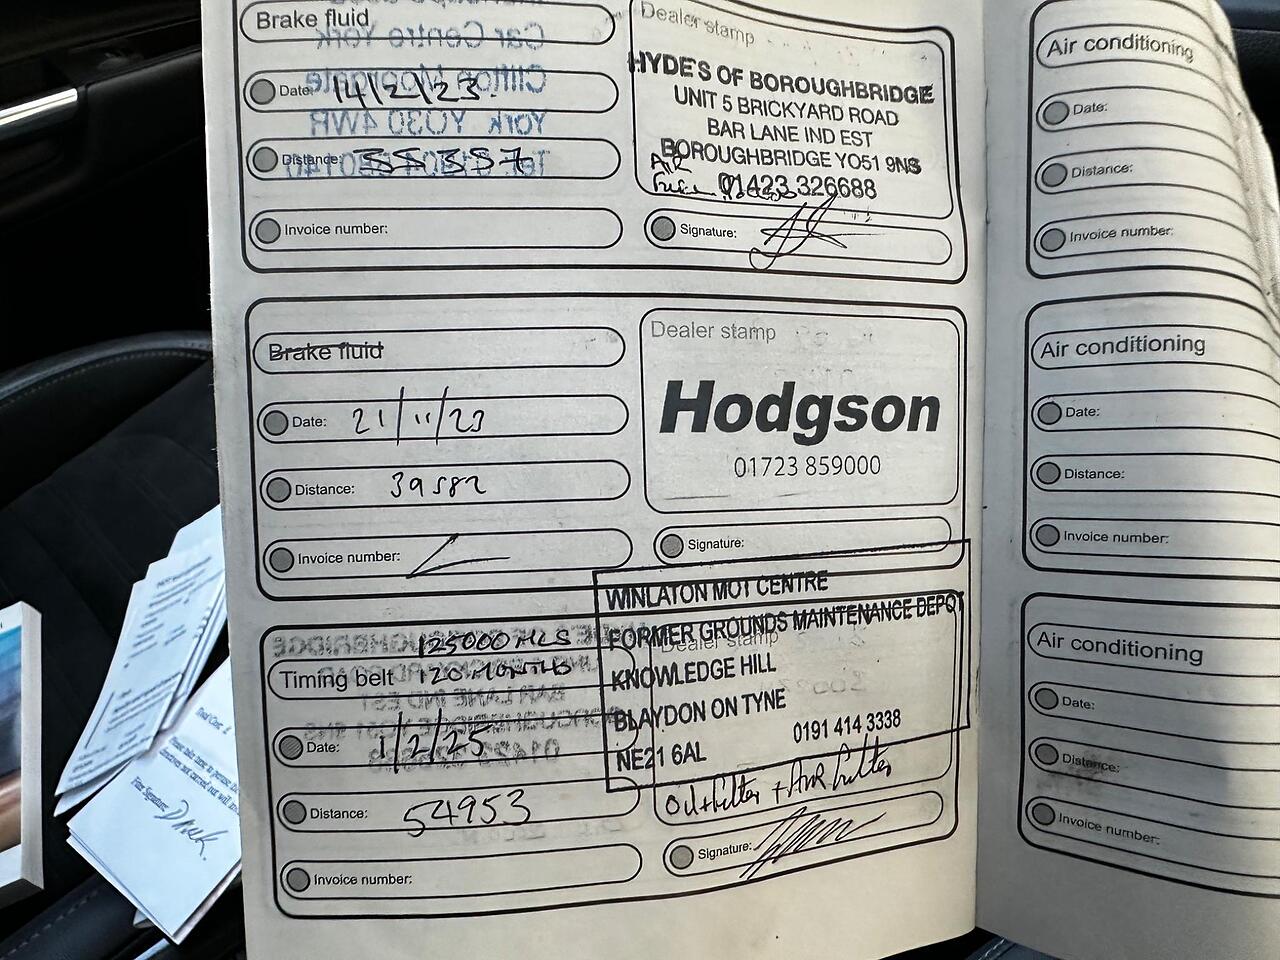 Brake fluid
Date: 14/2/23.
Distance:
Invoice number:
Dealer stamp
HYDE'S OF BOROUGHBRIDGE
UNIT 5 BRICKYARD ROAD
BAR LANE IND EST
BOROUGHBRIDGE YO51 9NS
AIR
01423 326688
Signature:
Brake fluid
Date: 21/11/23
Distance: 39582
Invoice number:
Dealer stamp
Hodgson
01723 859000
Signature:
125000 MLS
Timing belt 120 MONTHS
Date: 1/2/25
Distance: 54953
Invoice number:
WINLATON MOT CENTRE
FORMER GROUNDS MAINTENANCE DEPOT
Dealer stamp
KNOWLEDGE HILL
BLAYDON ON TYNE
NE21 6AL 0191 414 3338
Oil + Filter + Air Filter
Signature:
Air conditioning
Date:
Distance:
Invoice number:
Air conditioning
Date:
Distance:
Invoice number:
Air conditioning
Date:
Distance:
Invoice number: